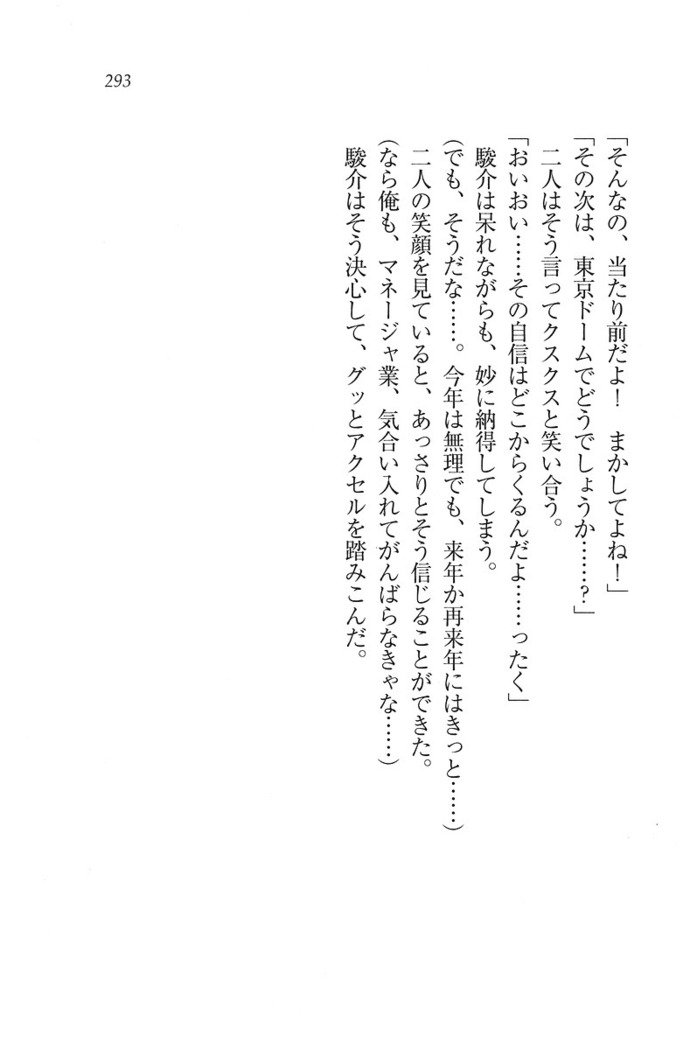 293
「そんなの、当たり前だよ！　まかしてよね！」
「その次は、東京ドームでどうでしょうか……？」
二人はそう言ってクスクスと笑い合う。
「おいおい……その自信はどこからくるんだよ……ったく」
駿介は呆れながらも、妙に納得してしまう。
(でも、そうだな……。今年は無理でも、来年か再来年にはきっと……)
二人の笑顔を見ていると、あっさりとそう信じることができた。
(なら俺も、マネージャ業、気合い入れてがんばらなきゃな……)
駿介はそう決心して、グッとアクセルを踏みこんだ。